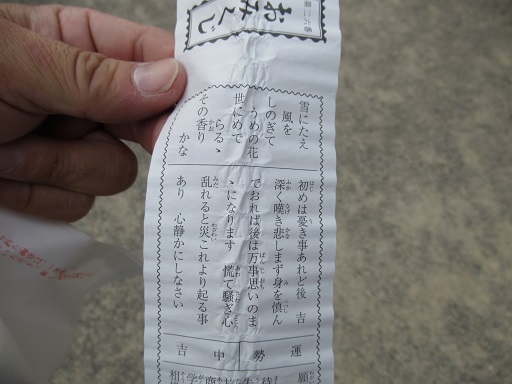 おみくじ
雪にたえ
風を
しのぎて
うめの花
世にめで
らるゝ
その香り
かな
初めは憂き事あれど後 吉
深く嘆き悲しまず身を慎ん
でおれば後は万事思いのま
ゝになります 慌て騒ぎ心
乱れると災これより起る事
あり 心静かにしなさい
運勢 中吉
願
待